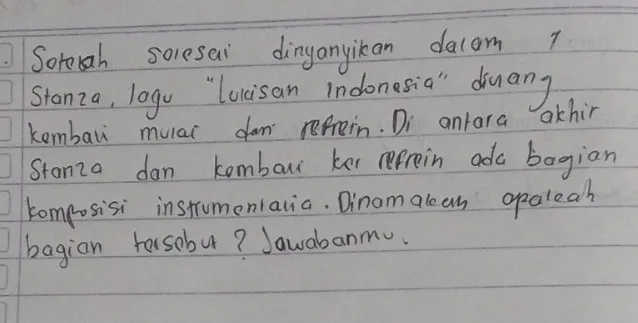 Setelah selesai dinyanyikan dalam 1
Stanza, lagu "Lukisan Indonesia" diulang
kembali mulai dari refrein. Di antara akhir
Stanza dan kembali ke refrein ada bagian
komposisi instrumentalia. Dinamakan apakah
bagian tersebut? Jawabanmu.